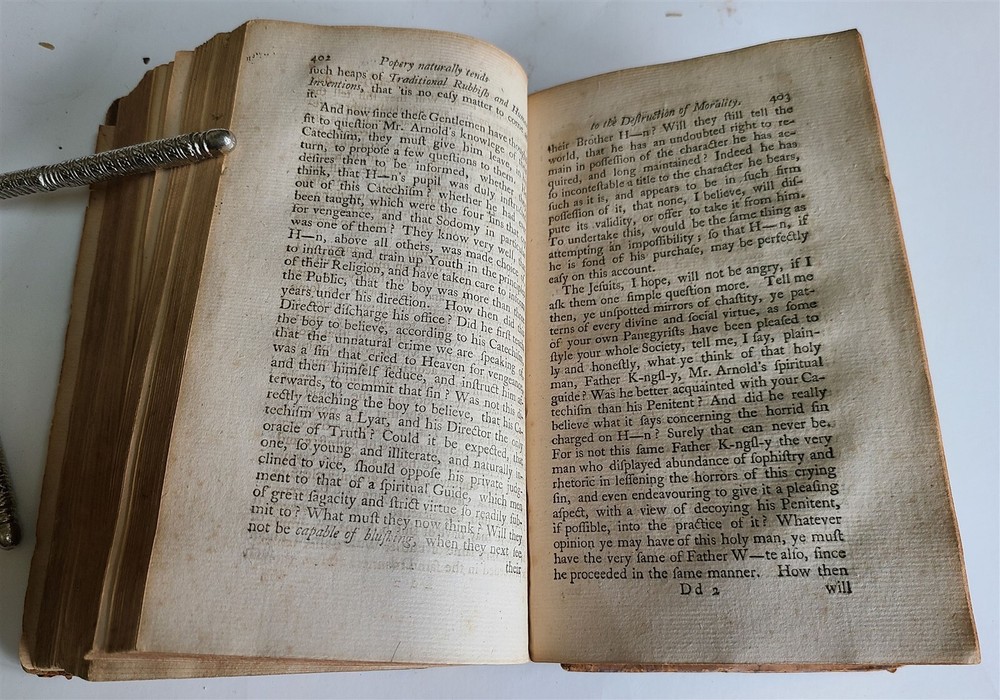 402
Popery naturally tends
ſuch heaps of Traditional Rubbiſh and
Inventions, that 'tis no eaſy matter to
it.
And now ſince theſe Gentlemen have
fit to queſtion Mr. Arnold's knowlege of
Catechiſm, they muſt give him leave, in
turn, to propoſe a few queſtions to them.
deſires then to be informed, whether
think, that H—n's pupil was duly
out of this Catechiſm? whether he had
been taught, which were the four ſins that
for vengeance, and that Sodomy in
was one of them? They know very well, that
H—n, above all others, was made choice
to inſtruct and train up Youth in the
of their Religion, and have taken care to
the Public, that the boy was more than
years under his direction. How then did
Director diſcharge his office? Did he firſt
the boy to believe, according to his Catechiſm
that the unnatural crime we are ſpeaking of
was a ſin that cried to Heaven for vengeance
and then himſelf ſeduce, and inſtruct him
terwards, to commit that ſin? Was not this
rectly teaching the boy to believe, that his Ca-
techiſm was a Lyar, and his Director the only
oracle of Truth? Could it be expected, that
one, ſo young and illiterate, and naturally in-
clined to vice, ſhould oppoſe his private judg-
ment to that of a ſpiritual Guide, which men
of great ſagacity and ſtrict virtue ſo readily ſub-
mit to? What muſt they now think? Will they
not be capable of bluſhing, when they next ſee
their
403
to the Deſtruction of Morality.
their Brother H—n? Will they ſtill tell the
world, that he has an undoubted right to re-
main in poſſeſſion of the character he has ac-
quired, and long maintained? Indeed he has
ſo inconteſtable a title to the character he bears,
ſuch as it is, and appears to be in ſuch firm
poſſeſſion of it, that none, I believe, will diſ-
pute its validity, or offer to take it from him.
To undertake this, would be the ſame thing as
attempting an impoſſibility; ſo that H—n, if
he is fond of his purchaſe, may be perfectly
eaſy on this account.
The Jeſuits, I hope, will not be angry, if I
aſk them one ſimple queſtion more. Tell me
then, ye unſpotted mirrors of chaſtity, ye pat-
terns of every divine and ſocial virtue, as ſome
of your own Panegyriſts have been pleaſed to
ſtyle your whole Society, tell me, I ſay, plain-
ly and honeſtly, what ye think of that holy
man, Father K-ngſl-y, Mr. Arnold's ſpiritual
guide? Was he better acquainted with your Ca-
techiſm than his Penitent? And did he really
believe what it ſays concerning the horrid ſin
charged on H—n? Surely that can never be.
For is not this ſame Father K-ngſl-y the very
man who diſplayed abundance of ſophiſtry and
rhetoric in leſſening the horrors of this crying
ſin, and even endeavouring to give it a pleaſing
aſpect, with a view of decoying his Penitent,
if poſſible, into the practice of it? Whatever
opinion ye may have of this holy man, ye muſt
have the very ſame of Father W—te alſo, ſince
he proceeded in the ſame manner. How then
D d 2
will